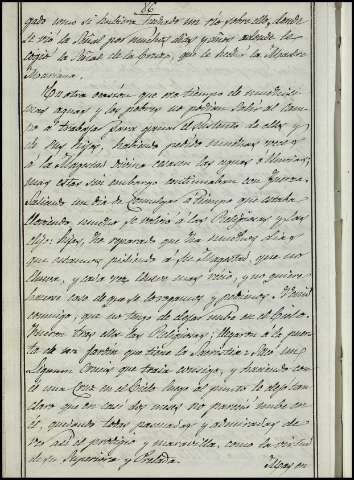 86
gado como si hubiera tachado un rio sobre ella, donde
se vió la Señal por muchos dias y años adonde le
cogio la Señal de la Cruz, que le hechó la Madre
Mariana.
En otra ocasion que era tiempo de muchisi-
mas aguas y los pobres no podian salir al cam-
po á trabajar para ganar el sustento de ellos y
de sus hijos, habiendo pedido muchas veces
á la Magestad Divina cesasen las aguas ó lluvias,
mas estas sin embargo continuaban con fuerza.
Saliendo un dia de Comulgar á tiempo que estaba
lloviendo mucho se volvió á las Religiosas y las
dijo: hijas, he reparado que ha muchos dias
que estamos pidiendo á Su Magestad, que no
llueva, y cada vez llueve mas recio, y no quiere
hacer caso de que le rogamos y pedimos. Vengan
conmigo, que no tengo de dejar nube en el Cielo.
Fueron tras ella las Religiosas; llegaron á la puer-
ta de un jardin que tiene la Sacristia. Sacó un
Lignum Crucis que traia consigo, y haciendo con
él una Cruz en el Cielo luego al punto le dejó tan
claro que en casi dos meses no pareció nube en
él, quedando todas pasmadas y admiradas de
ver asi el prodigio y maravilla, como la virtud
de su Superiora y Prelada.
Mas en